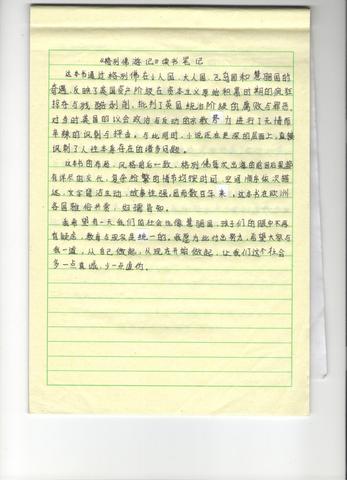 《格列佛游记》读书笔记
这本书通过格列佛在小人国、大人国、飞岛国和慧骃国的
奇遇,反映了英国资产阶级在资本主义原始积累时期的疯狂
掠夺与残酷剥削,批判了英国统治阶级的腐败与罪恶,
对当时英国的议会政治与反动的宗教势力进行了无情而
辛辣的讽刺与抨击。与此同时,小说还在更深的层面上,直接
讽刺了人性本身存在的诸多问题。
这本书的布局、风格前后一致,格列佛每次出海的前因后果都
有详尽的交代,复杂纷繁的情节均按时间、空间顺序依次描
述,文字简洁生动,故事性强,因而数百年来,这本书在欧洲
各国雅俗共赏,妇孺皆知。
我希望有一天我们的社会也像慧骃国,孩子们的眼中不再
有疑惑,教育与现实是统一的。我愿为此付出努力,希望大家与
我一道,从自己做起,从现在开始做起,让我们这个社会
多一点真诚,少一点虚伪。